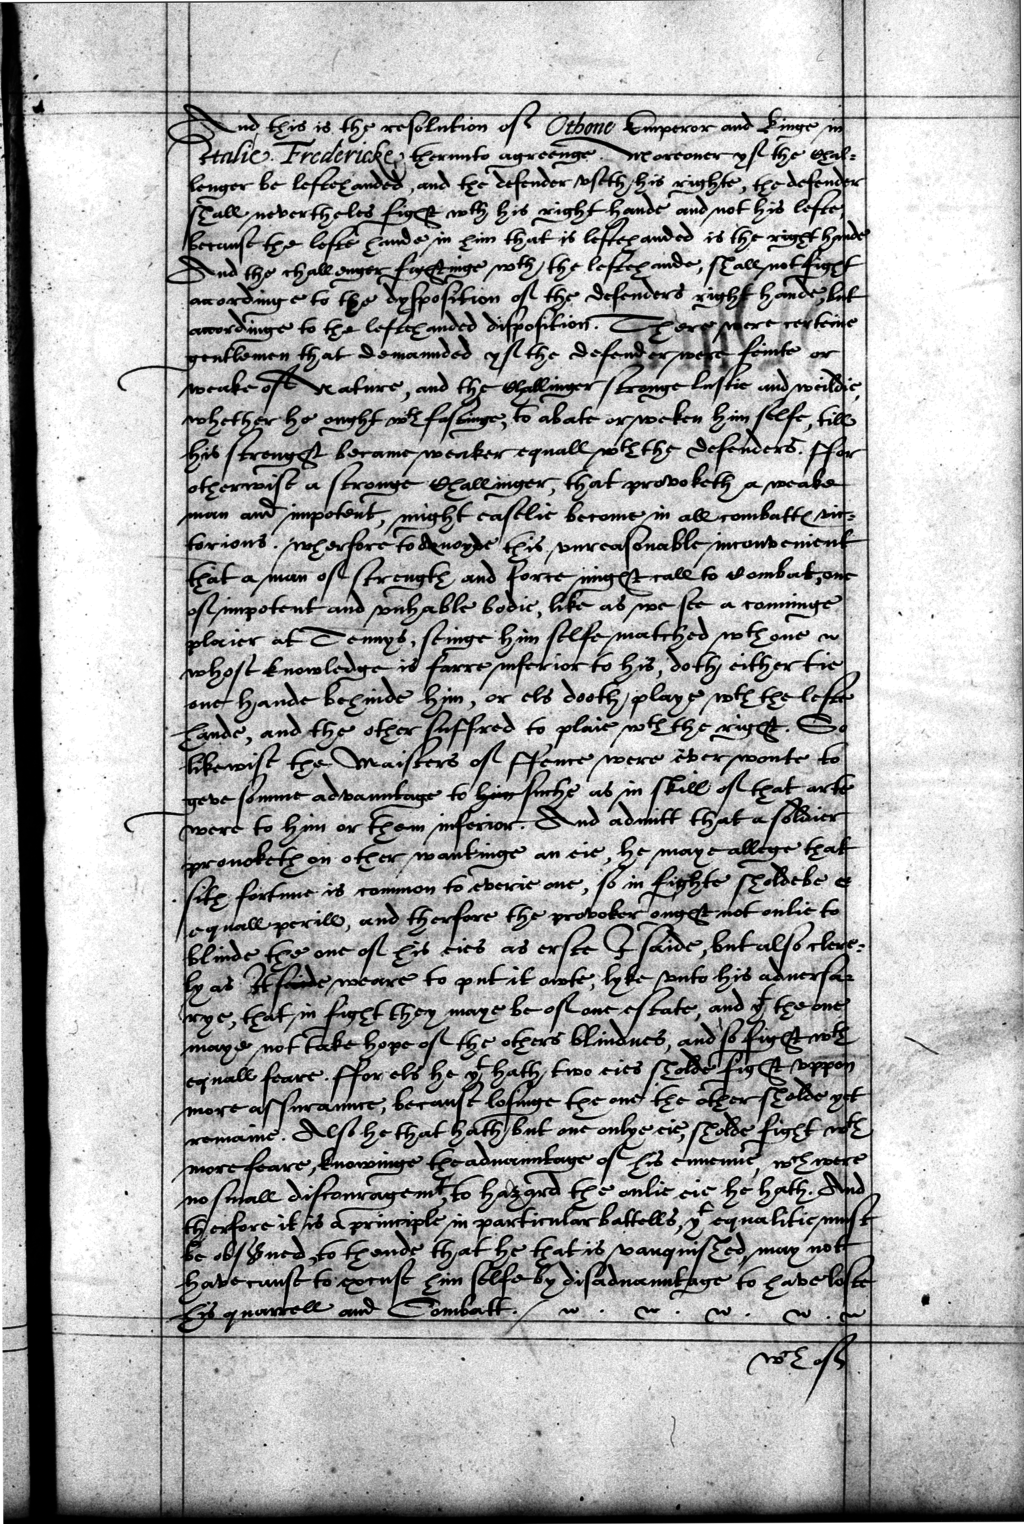 And this is the resolution of Othone Emperor and Kinge in
Italie. Fredericke therunto agreenge. Moreouer yf the Chal-
lenger be leftehanded, and the defender vseth his righte, the defender
shall nevertheles fight wth his right hande and not his lefte,
because the lefte hande in him that is leftehanded is the right hande
And the challenger fightinge wth the leftehande, shall not fight
accordinge to the dysposition of the defenders right hande, but
accordinge to the leftehanded disposition. There were certeine
gentlemen that demaunded yf the defender were feinte or
weake of Nature, and the Challinger stronge lustie and weildie,
whether he ought wth fastinge, to abate or weken him selfe, till
his strenght became weaker equall wth the defenders. ffor
otherwise a stronge Challinger, that provoketh a weake
man and impotent, might easelie become in all combatts vic-
torious. wherfore to auoyde this vnreasonable inconvenient
that a man of strength and force might call to Combat, one
of impotent and vnhable bodie, like as we see a conninge
plaier at Tennys, seinge him selfe matched wth one
whose knowledge is farre inferior to his, doth either tie
one hande behinde him, or els dooth playe wth the lefte
hande, and the other suffred to plaie wth the right. So
likewise the Maisters of ffence were ever wonte to
geve somme advauntage to him suche as in skill of that arte
were to him or them inferior. And admitt that a soldier
prouoketh an other wantinge an eie, he maye allege that
sith fortune is common to everie one, so in fighte sholde be
equall perill, and therfore the provoker ought not onlie to
blinde the one of his eies as erste I saide, but also clere-
ly as It weare to put it owte, lyke vnto his aduersa-
rye, that in fight they maye be of one estate, and yt the one
maye not take hope of the others blindnes, and so fight wth
equall feare. ffor els he yt hath two eies sholde fight vppon
more assuraunce, because losinge the one the other sholde yet
remaine. Also he that hath but one onlye eie, sholde fight wth
more feare, knowinge the aduauntage of his ennemie, wch were
no small discouragemt, to hazard the onlie eie he hath. And
therfore it is a principle in particular battells, yt equalitie must
be obserued, to thende that he that is vanquished, may not
have cause to excuse him selfe by disaduauntage to have loste
his quarrell and Combatt.
wch of